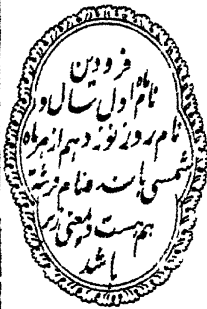 فرودین
نام ماه اول سال و
نام روز نوزدهم از هر ماه
شمسی باشد و نام فرشتهٔ
هم هست و بمعنی زیر
باشد